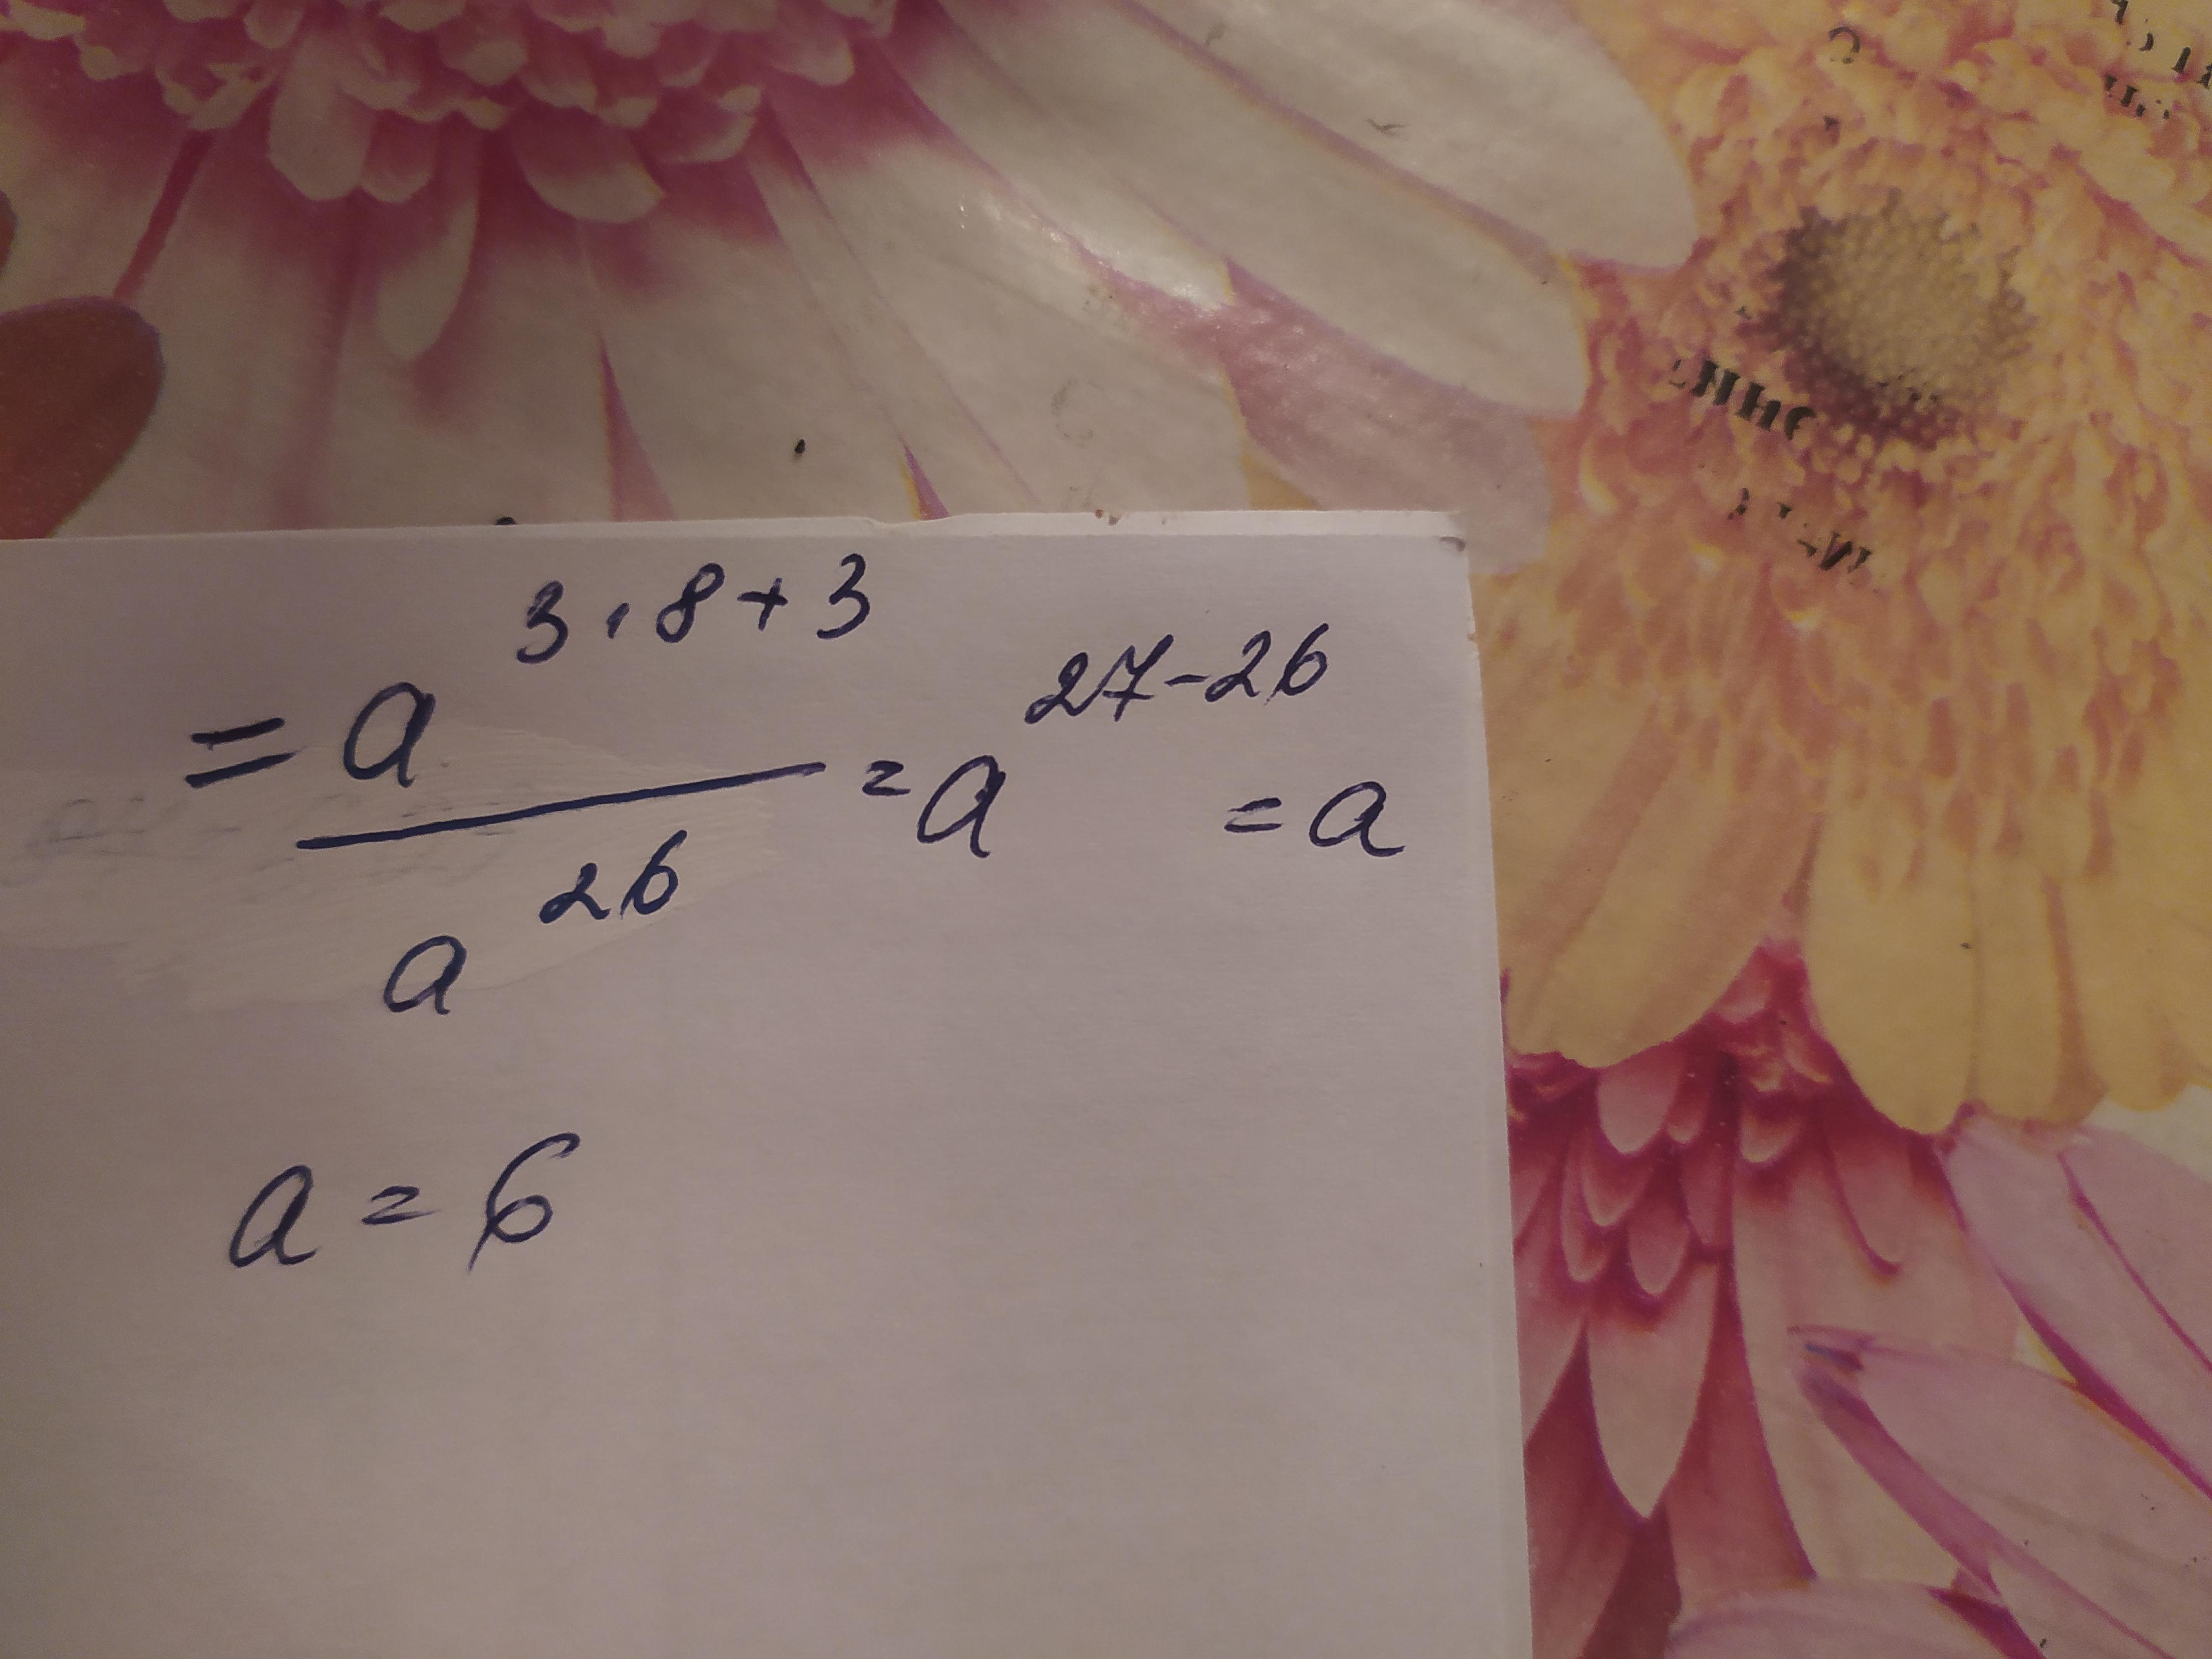 = a^{3·8+3} / a^{26} = a^{27-26} = a
a = 6